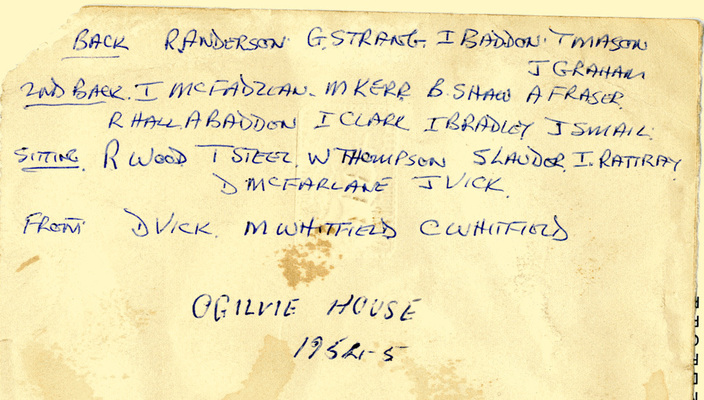 BACK R ANDERSON G. STRANG. I BADDON. T MASON
J GRAHAM
2ND BACK. I MCFADZEAN. M KERR B. SHAW A FRASER.
R HALL A BADDON I CLARK I BRADLEY J SMAIL.
SITTING. R WOOD T STEEL. W THOMPSON S LAUDER. I. RATTRAY
D MCFARLANE J VICK.
FRONT D VICK. M WHITFIELD C WHITFIELD
OGILVIE HOUSE
1954-5